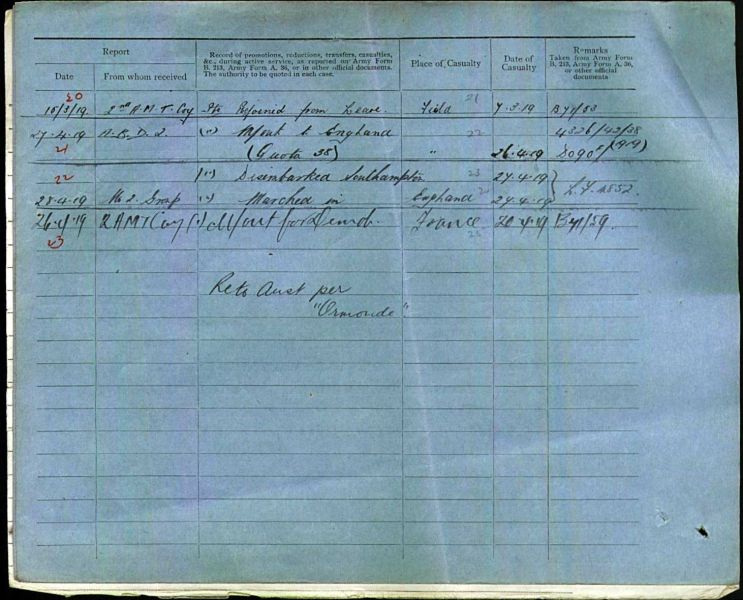 Report
Date
From whom received
Record of promotions, reductions, transfers, casualties,
&c., during active service, as reported on Army Form
B. 213, Army Form A. 36, or in other official documents.
The authority to be quoted in each case.
Place of Casualty
Date of
Casualty
Remarks
Taken from Army Form
B. 213, Army Form A. 36,
or other official
documents
20
15/3/19. 2nd A.M.T. Coy Pte Rejoined from Leave. Field 21 7.3.19 By1/53
27.4.19 A.B.D.2. (") M/out to England " 22 4326/42/38
21 (Quota 38) 26.4.19 (1919)
22 (") Disembarked Southampton 23 27.4.19
28.4.19 No 2 Grop (") Marched in England 27.4.19 4852.
26.4.19 2AMT Coy (") M/out for Demob. France 20.4.19 By1/59.
23 25
Ret to Aust per
"Ormonde"